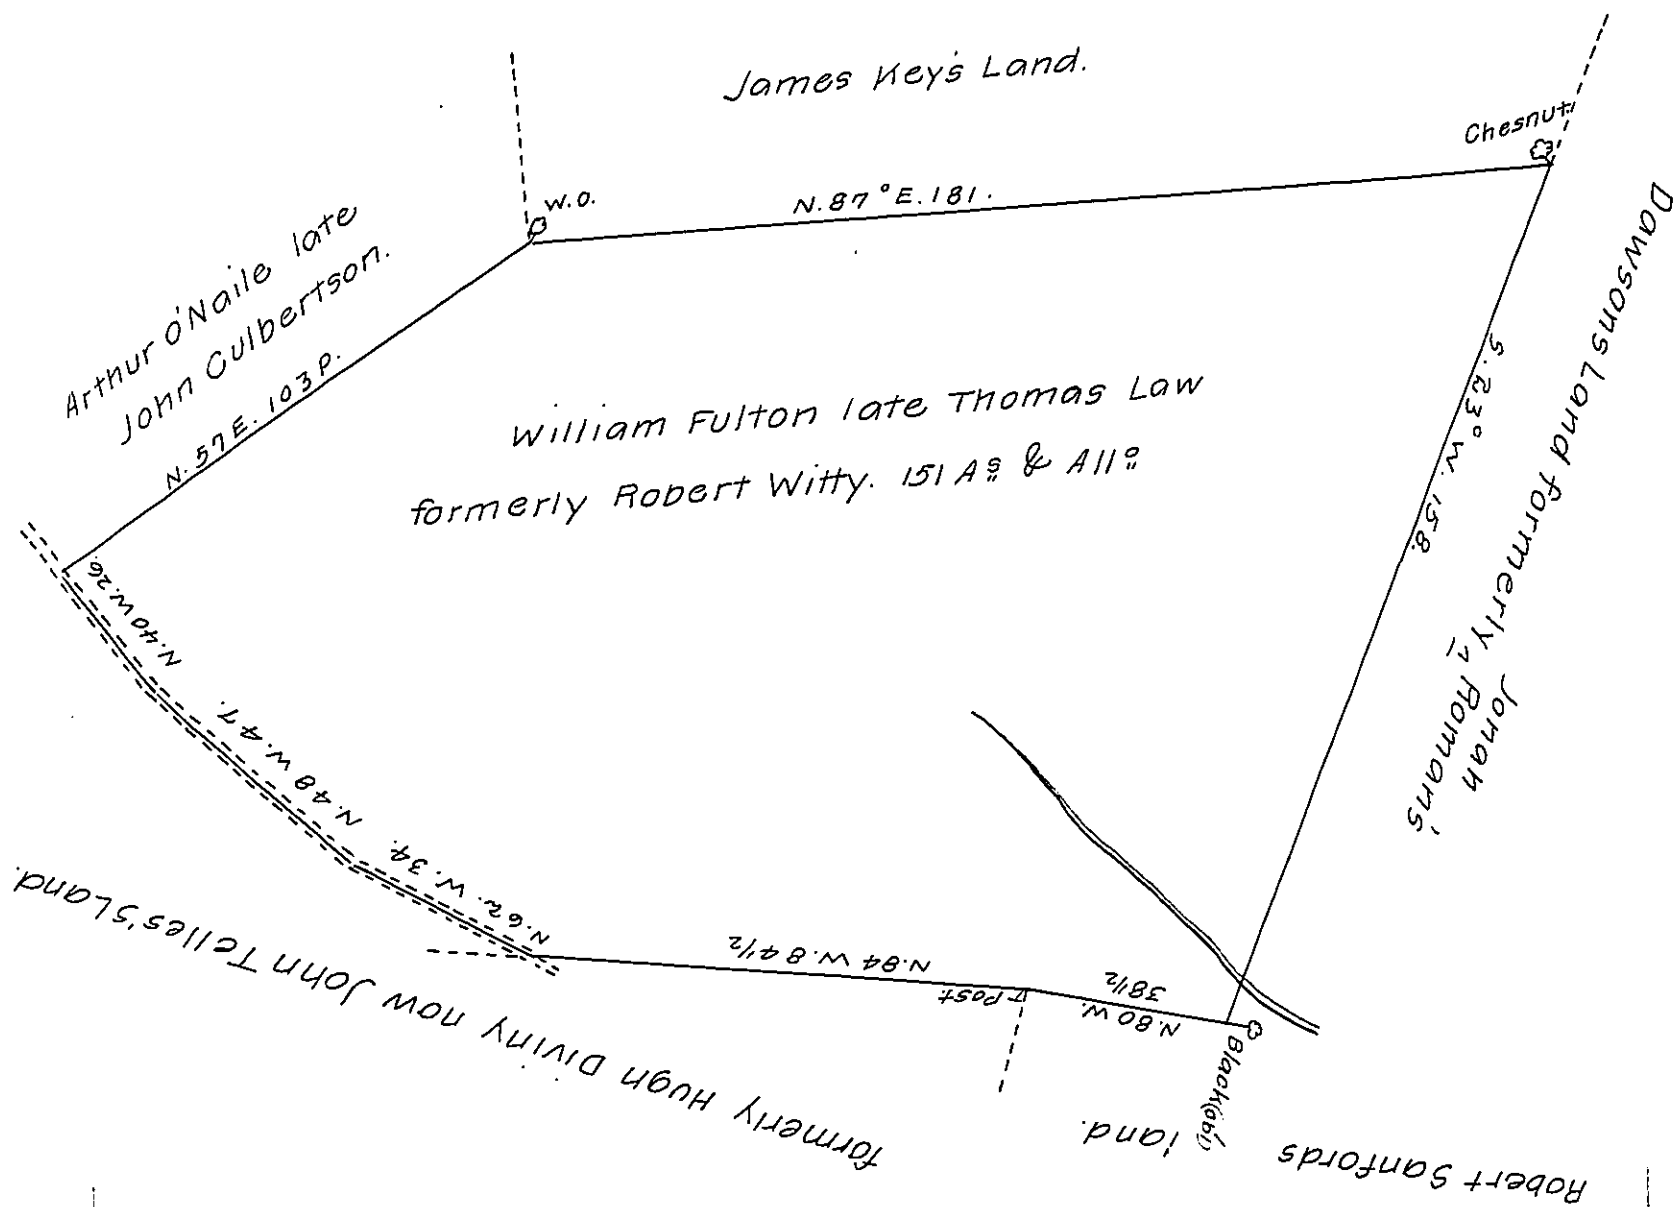 James Key's Land.
Chesnut
W.O.
N.87°E.181.
Arthur O'Naile late
John Culbertson.
N.57E. 103P.
William Fulton late Thomas Law
formerly Robert Witty. 151 As & Allo
S.23°W.158.
Dawsons Land formerly ^ Romans
Jonah
N.40W.26.
N.48W.47.
N.62.W.34.
N.84W.84½
Post
N.80W.
38½
Black(obl)
formerly Hugh Diviny now John Telles's Land.
Robert Sanfords
land.